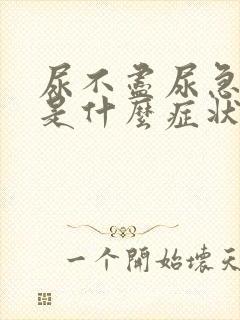 尿不盡尿急
是什麼症狀
一个開始壞天